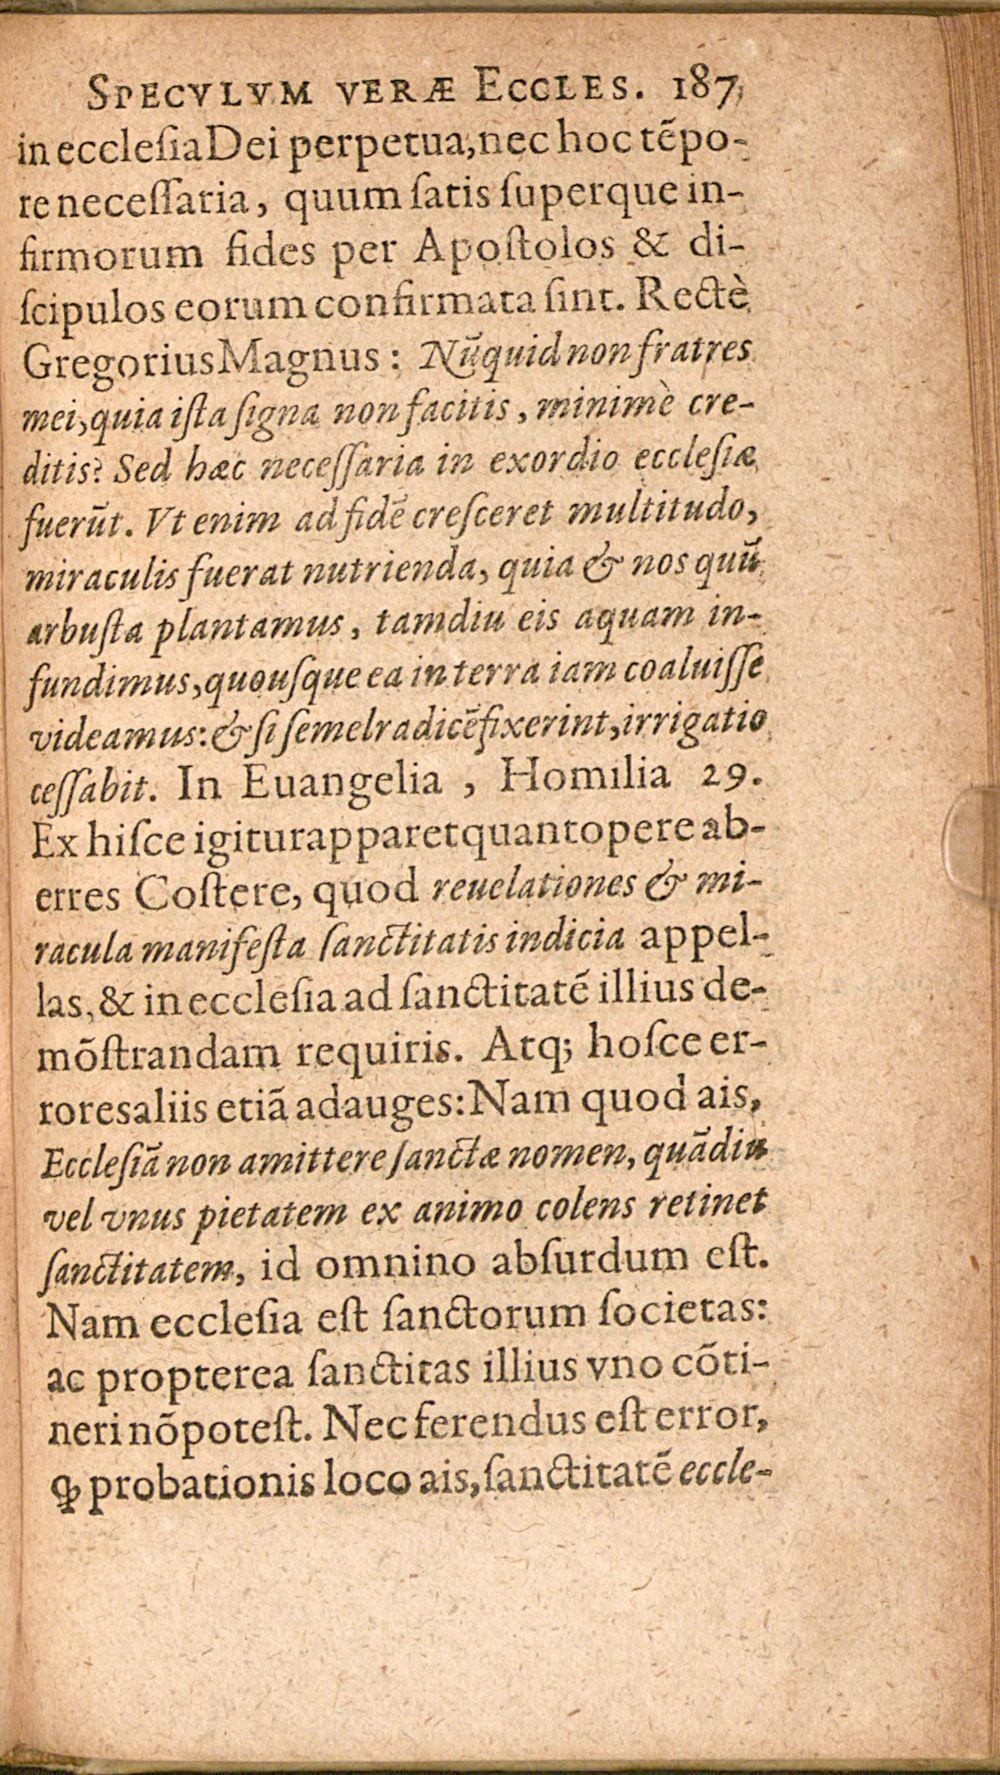 SPECVLVM VERÆ ECCLES. 187
in ecclesia Dei perpetua, nec hoc tẽpo-
re necessaria, quum satis superque in-
firmorum fides per Apostolos & di-
scipulos eorum confirmata sint. Rectè
Gregorius Magnus: Nũquid non fratres
mei, quia ista signa non facitis, minimè cre-
ditis? Sed hæc necessaria in exordio ecclesiæ
fuerũt. Vt enim ad fidẽ cresceret multitudo,
miraculis fuerat nutrienda, quia & nos quũ
arbusta plantamus, tamdiu eis aquam in-
fundimus, quousque ea in terra iam coaluisse
videamus: & si semel radicẽ fixerint, irrigatio
cessabit. In Euangelia, Homilia 29.
Ex hisce igitur apparet quantopere ab-
erres Costere, quod reuelationes & mi-
racula manifesta sanctitatis indicia appel-
las, & in ecclesia ad sanctitatẽ illius de-
mõstrandam requiris. Atq; hosce er-
rores aliis etiã adauges: Nam quod ais,
Ecclesiã non amittere sanctæ nomen, quãdiu
vel vnus pietatem ex animo colens retinet
sanctitatem, id omnino absurdum est.
Nam ecclesia est sanctorum societas:
ac propterea sanctitas illius vno cõti-
neri nõ potest. Nec ferendus est error,
ꝙ probationis loco ais, sanctitatẽ eccle-